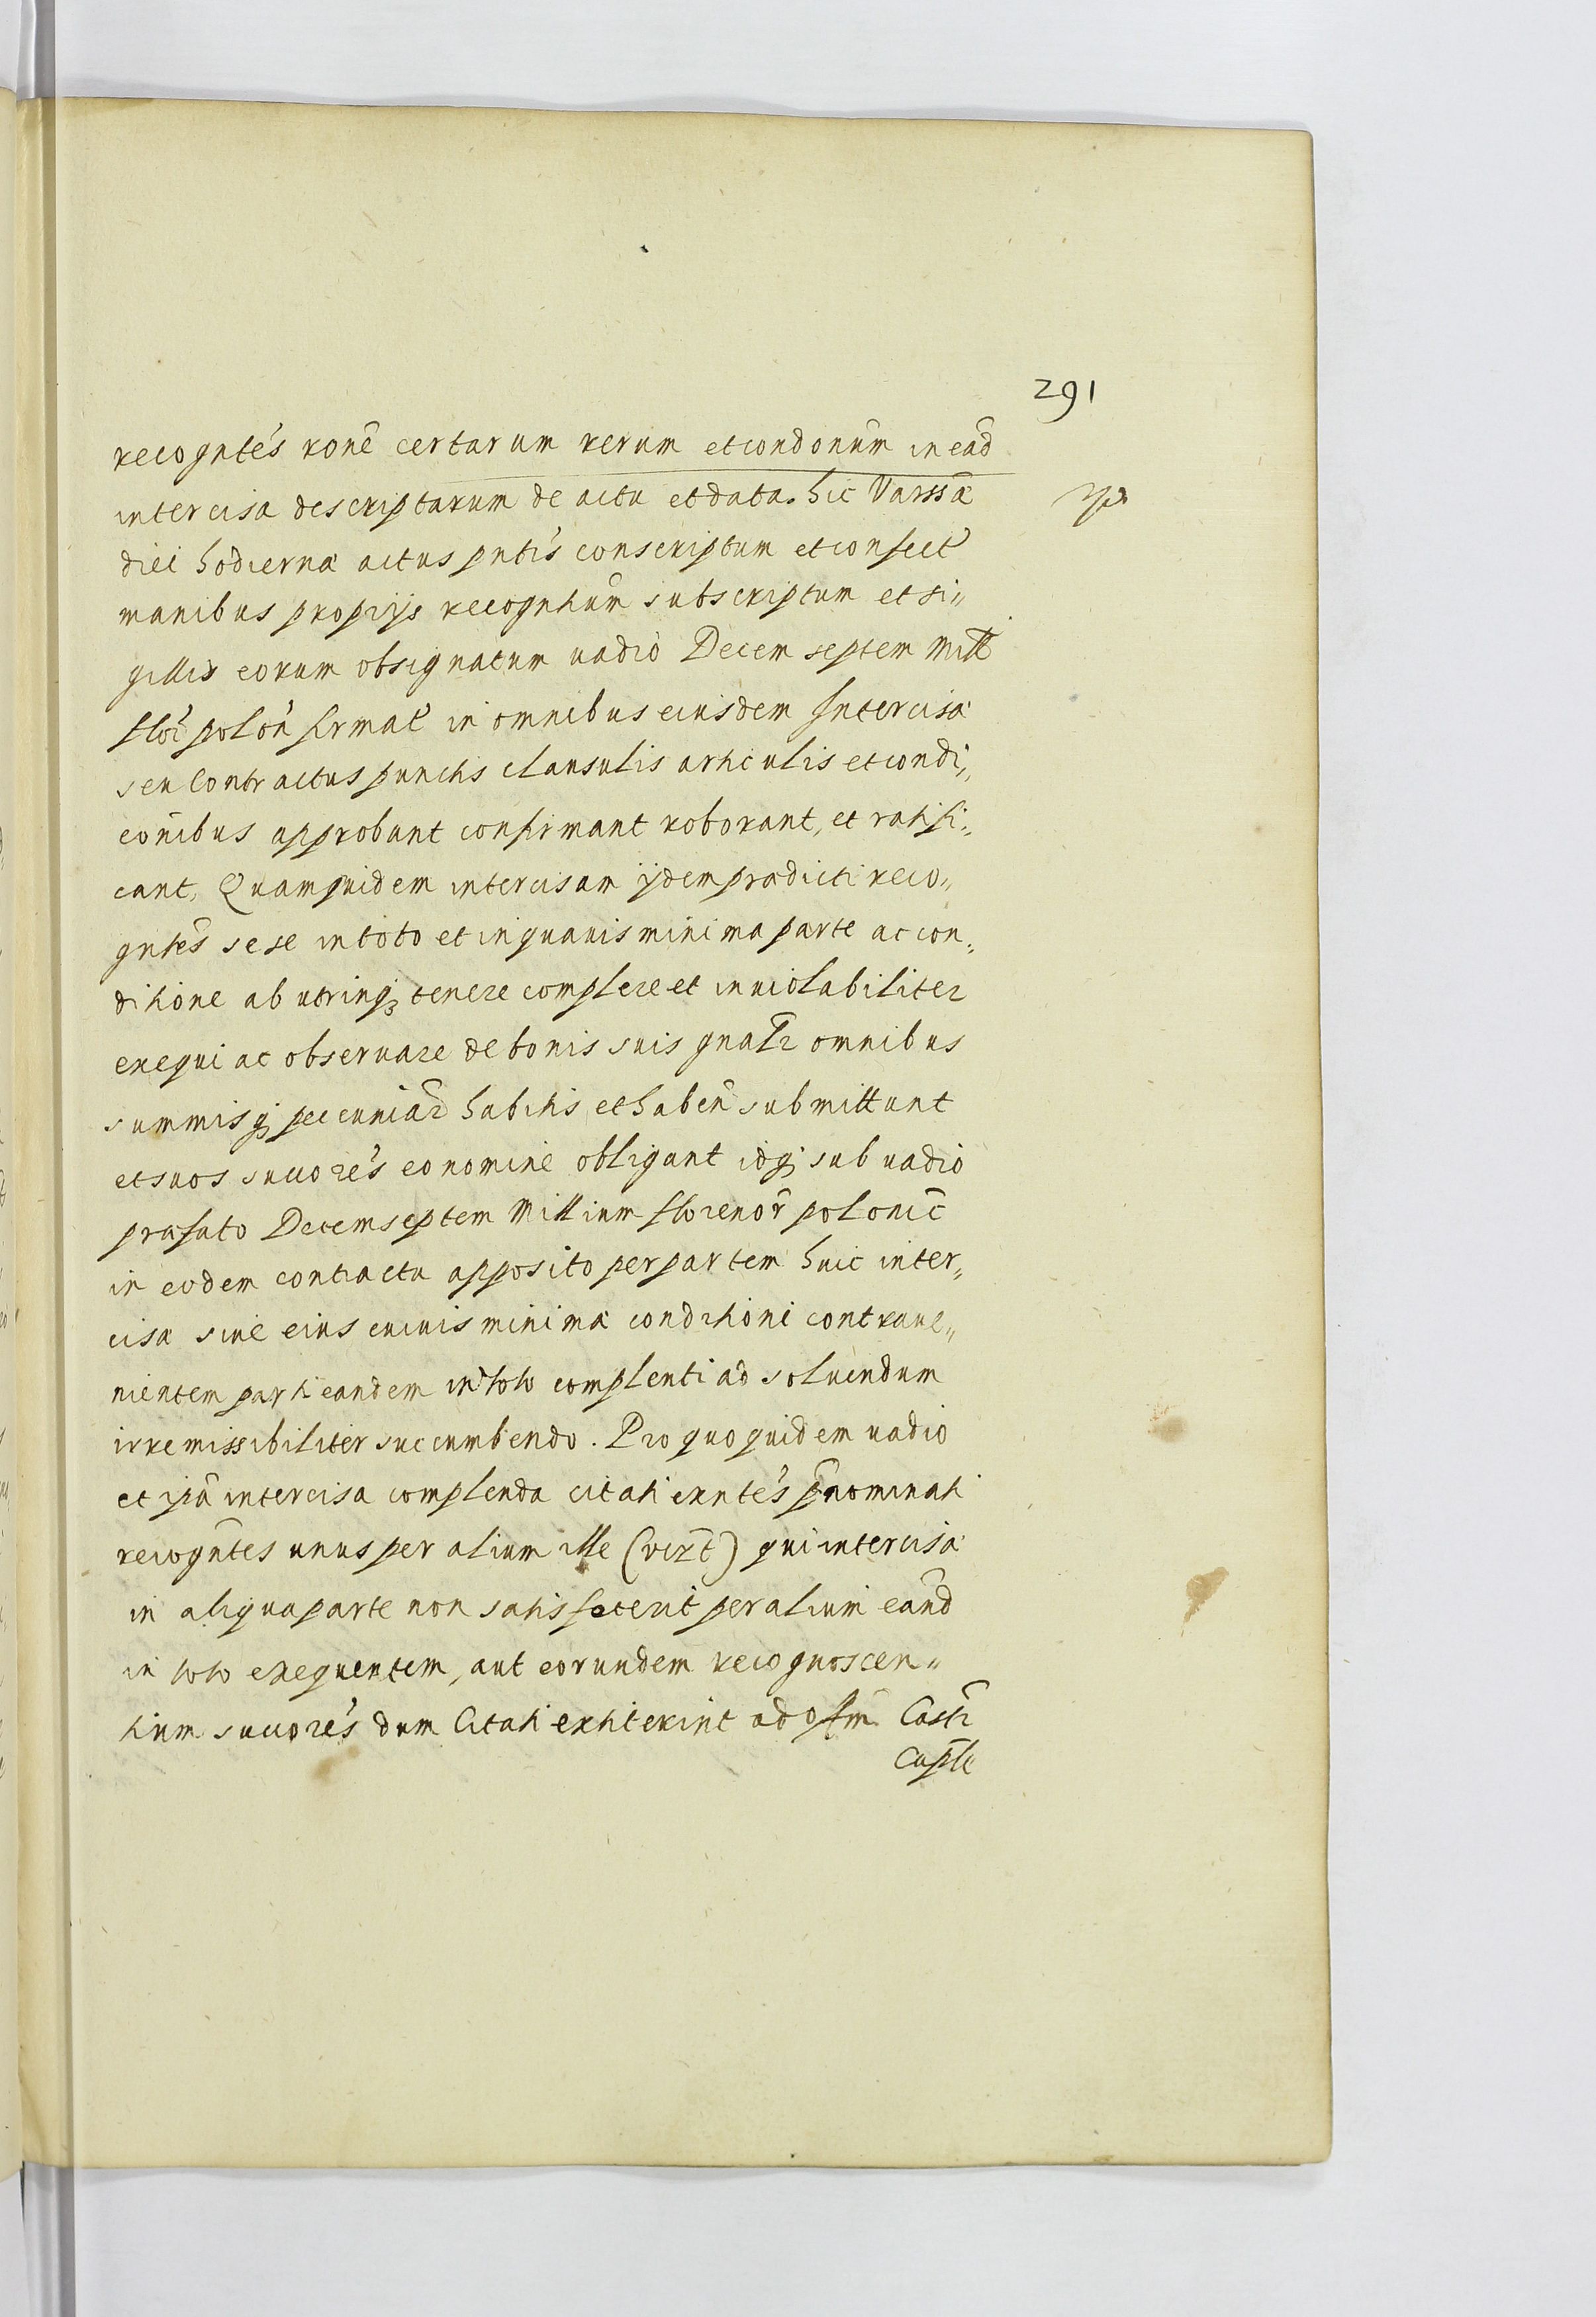 291
recogntes rone certarum rerum et condonum in ead
intercisa descriptarum de actu et data hic Varssæ
diei hodiernæ actus pntis conscriptum et confect
manibus proprijs recogntium subscriptum et si„
gillis eorum obsignatum vadio Decem septem Mill
flor polon firmat in omnibus eiusdem Intercisæ
seu Contractus punctis clausulis articulis et condi„
cōnibus approbant confirmant roborant, et ratifi„
cant, Quamquidem intercisam ijdem prædicti reco„
gntes sese in toto et in quauis minima parte ac con„
ditione ab utrinq tenere complere et inuiolabiliter
exequi ac obseruare de bonis suis gnalr omnibus
summisq pecuniar habitis et haben submittunt
et suos succores eo nomine obligant idq sub uadio
præfato Decem septem Millium florenor polonic
in eodem contractu apposito per partem huic inter„
cisæ siue eius cuiuis minimæ conditioni contraue„
nientem parti eandem in toto complenti ad soluendum
irremissibiliter succumbendo. Pro quo quidem uadio
et ipa intercisa complenda citati exntes pnominati
recogntes unus per alium ille (vizt) qui intercisæ
in aliqua parte non satisfecerit per alium eand
in toto exequentem, aut eorundem recognoscen„
tium succores dum Citati extiterint ad offm Castr
Capłe